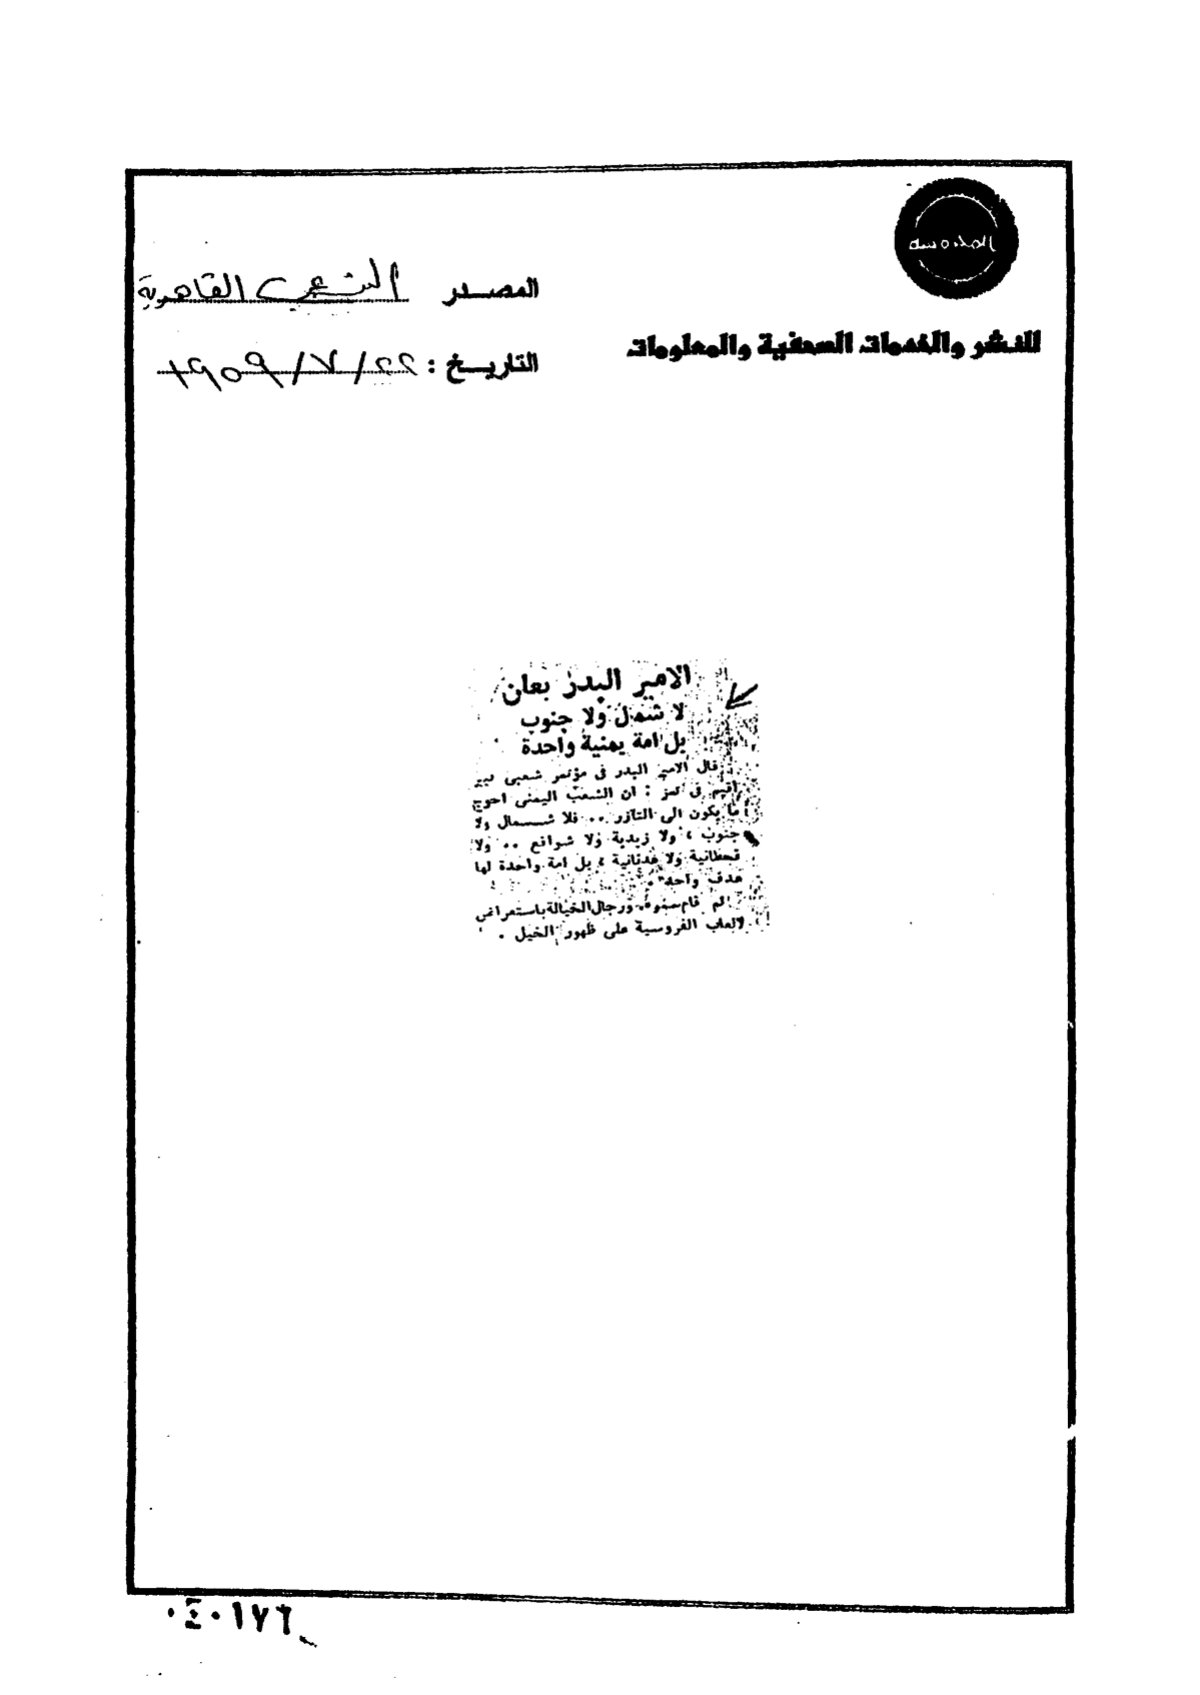 المصدر الشعب القاهرية
للنشر والخدمات الصحفية والمعلومات
التاريخ : ٢٢/٧/١٩٥٩
الامير البدر يعلن
لا شمال ولا جنوب
بل امة يمنية واحدة
قال الامير البدر فى مؤتمر شعبى كبير
اقيم فى تعز : ان الشعب اليمنى احوج
ما يكون الى التازر .. فلا شمال ولا
جنوب ، ولا زيدية ولا شوافع .. ولا
قحطانية ولا عدنانية ، بل امة واحدة لها
هدف واحد .
ثم قام سموه ورجال الخيالة باستعراض
لالعاب الفروسية على ظهور الخيل .
٠٤٠١٧٦